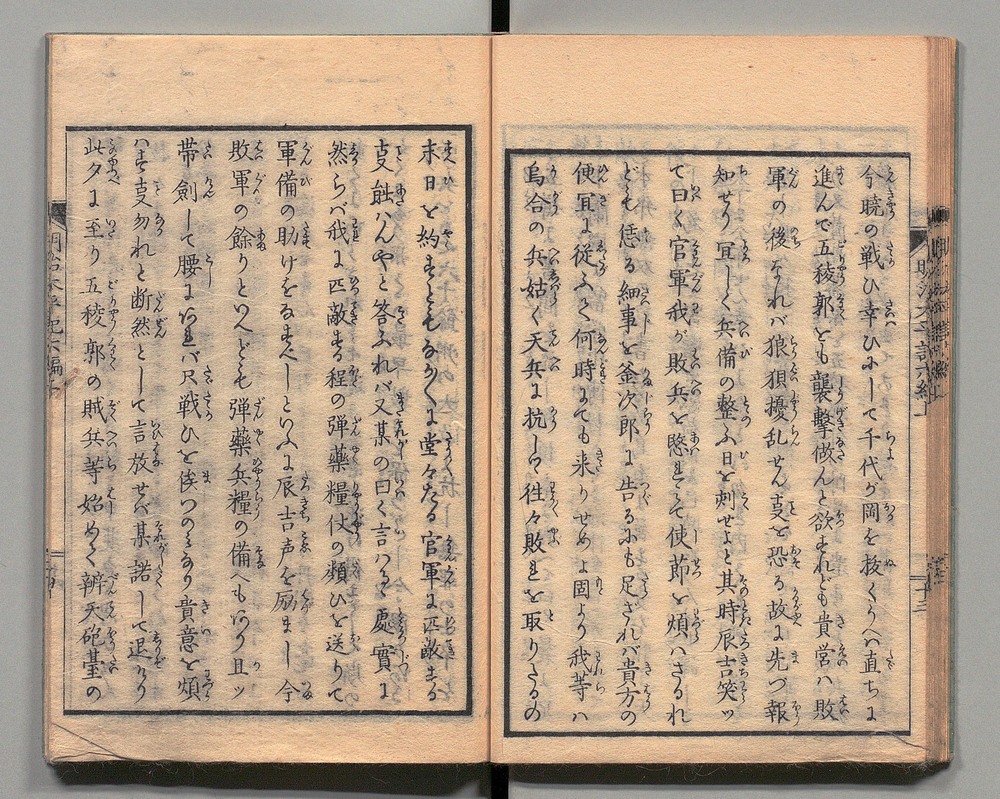 今暁の戦ひ幸ひにして千代が岡を抜くうへハ直ちに
進んで五稜郭をも襲撃做んと欲すれども貴営ハ敗
軍の後なれバ狼狽擾乱せん叓を恐る故に先づ報
知せり宜しく兵備の整ふ日を刻せよと其時辰吉笑ッ
て曰く官軍我が敗兵を愍ミて使節を煩ハさるれ
ども恁る細事を釜次郎に告るにも足ざれバ貴方の
便宜に従ふて何時にても来りせめよ固より我等ハ
烏合の兵姑く天兵に抗して往々敗を取りたるの
末日を約すともなか〳〵に堂々たる官軍に匹敵する
叓能ハんやと答ふれバ又某の曰く言ハるゝ處實に
然らバ我に匹敵する程の弾藥糧仗の類ひを送りて
軍備の助けをなすべしといふに辰吉声を励まし今
敗軍の餘りといへども弾藥兵糧の備へもあり且ッ
帶劍して腰にあれバ尺戦ひを俟つのミなり貴意を煩
ハす叓勿れと断然として言放せバ某諾して退けり
此夕に至り五稜郭の賊兵等始めて辨天砲䑓の
明治太平記六編上
十三